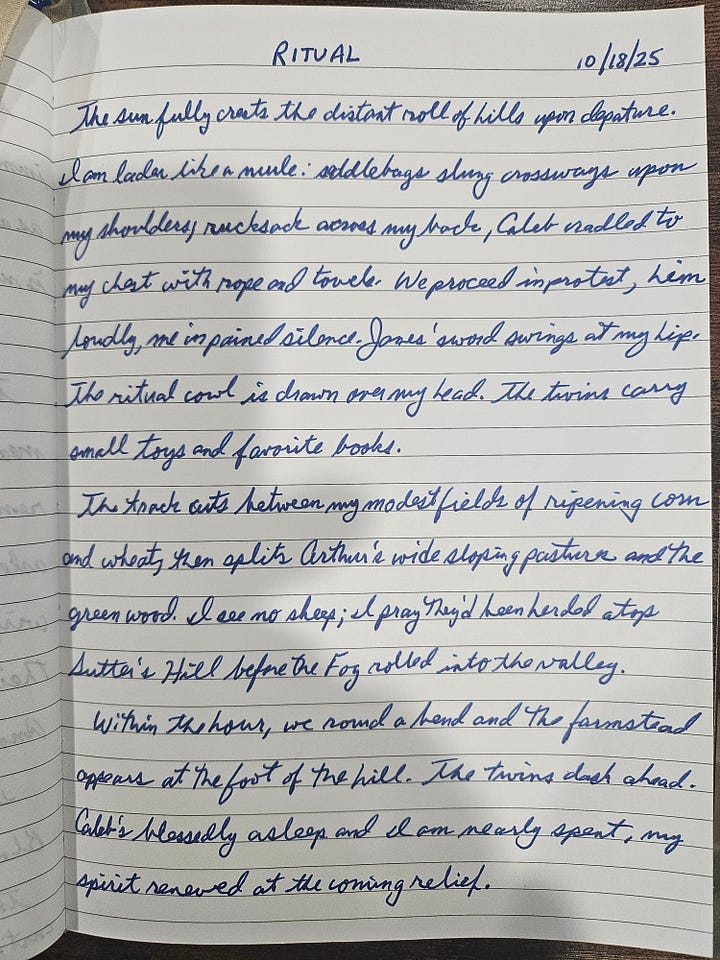 RITUAL 10/18/25
The sun fully crests the distant roll of hills upon depature.
I am laden like a mule: saddlebags slung crossways upon
my shoulders, rucksack across my back, Caleb cradled to
my chest with rope and towels. We proceed in protest, him
loudly, me in pained silence. James' sword swings at my hip.
The ritual cowl is drawn over my head. The twins carry
small toys and favorite books.
The track cuts between my modest fields of ripening corn
and wheat, then splits Arthur's wide sloping pastures and the
greenwood. I see no sheep; I pray they'd been herded atop
Sutter's Hill before the Fog rolled into the valley.
Within the hour, we round a bend and the farmstead
appears at the foot of the hill. The twins dash ahead.
Caleb's blessedly asleep and I am nearly spent, my
spirit renewed at the coming relief.